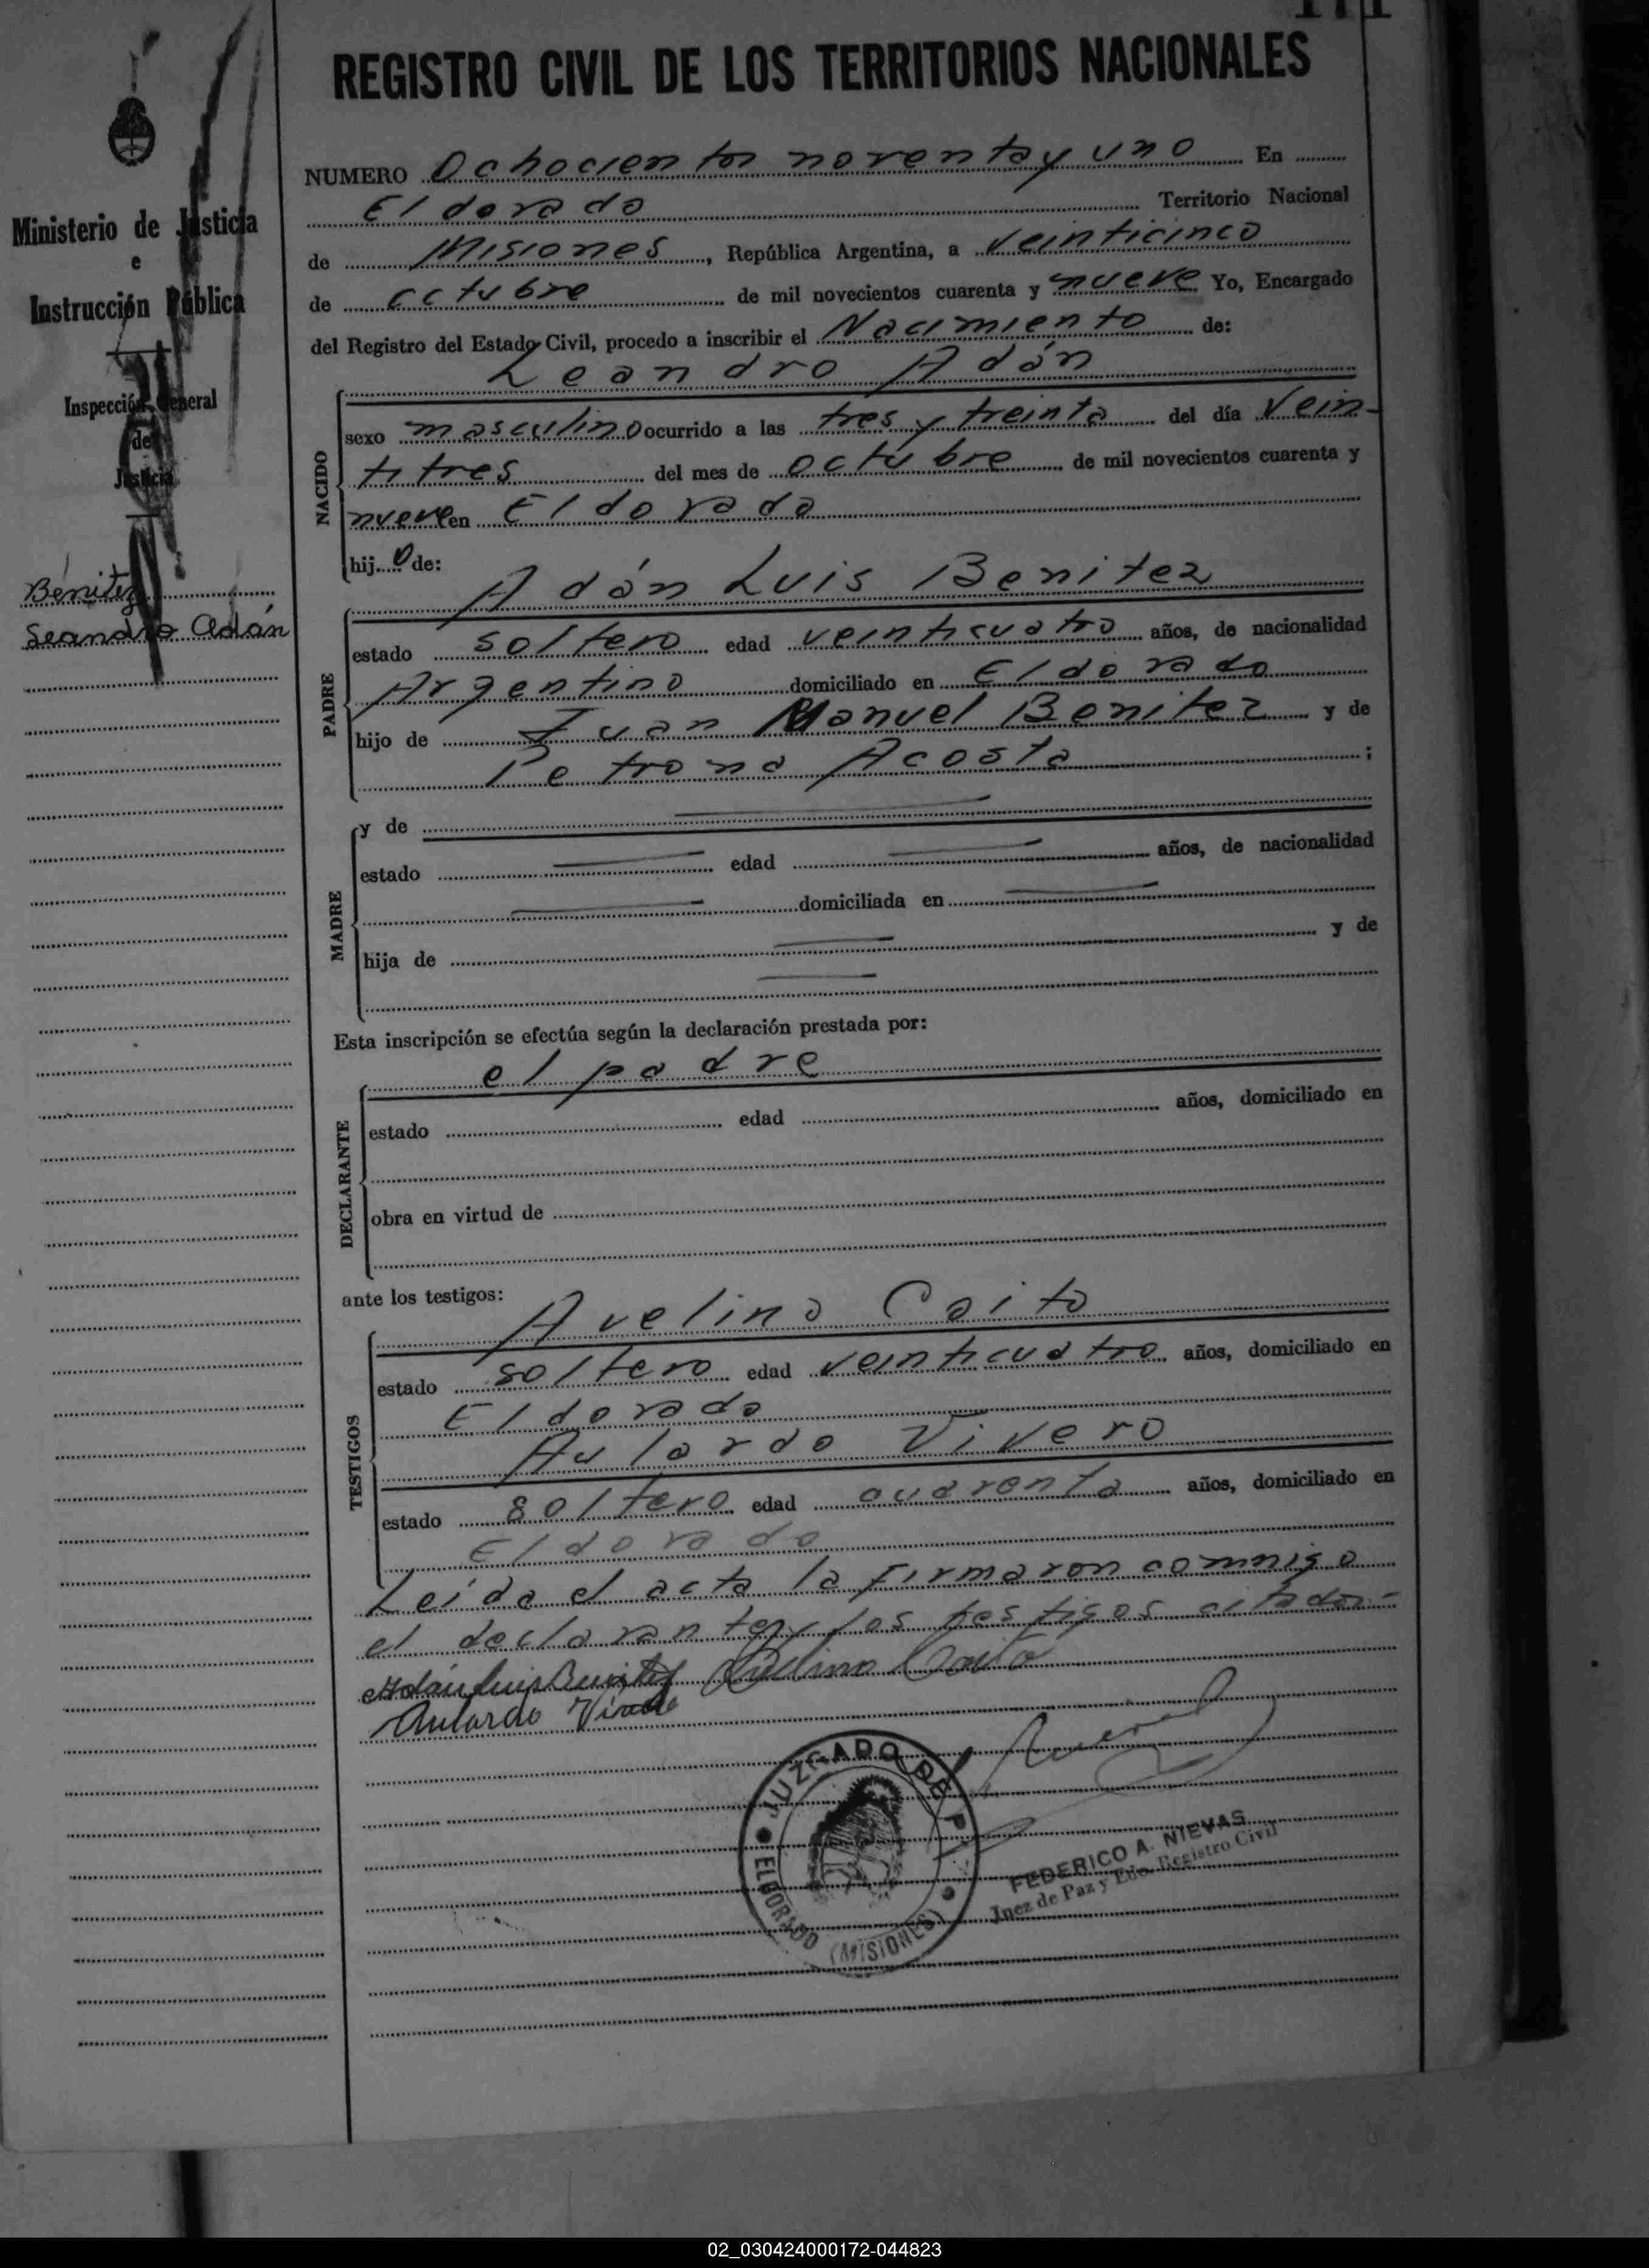 REGISTRO CIVIL DE LOS TERRITORIOS NACIONALES
Ministerio de Justicia
e
Instrucción Pública
Inspección General
de
Justicia
Benitez
Leandro Adán
NUMERO Ochocientos noventa y uno En
Eldorado Territorio Nacional
de Misiones, República Argentina, a veinticinco
de octubre de mil novecientos cuarenta y nueve Yo, Encargado
del Registro del Estado Civil, procedo a inscribir el Nacimiento de:
Leandro Adán
NACIDO
sexo masculino ocurrido a las tres y treinta del día Vein-
titres del mes de octubre de mil novecientos cuarenta y
nueve en Eldorado
hijo de:
Adán Luis Benitez
PADRE
estado soltero edad veinticuatro años, de nacionalidad
Argentino domiciliado en Eldorado
hijo de Juan Manuel Benitez y de
Petrona Acosta ;
MADRE
y de
estado edad años, de nacionalidad
domiciliada en
hija de y de
Esta inscripción se efectúa según la declaración prestada por:
el padre
DECLARANTE
estado edad años, domiciliado en
obra en virtud de
ante los testigos:
Avelino Coito
TESTIGOS
estado soltero edad veinticuatro años, domiciliado en
Eldorado
Aulardo Vivero
estado soltero edad cuarenta años, domiciliado en
Eldorado
Leida el acta la firmaron conmigo
el declarante y los testigos citados.-
Adán Luis Benitez Avelino Coito
Aulardo Vivero
JUZGADO DE P
ELDORADO (MISIONES)
FEDERICO A. NIEVAS
Juez de Paz y Edo. Registro Civil
02_030424000172-044823